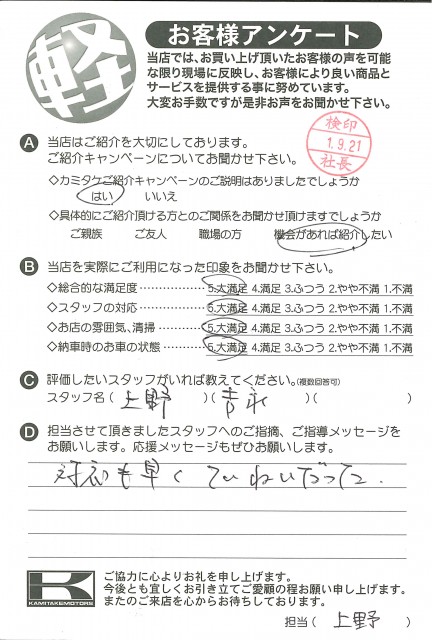 軽
お客様アンケート
当店では、お買い上げ頂いたお客様の声を可能
な限り現場に反映し、お客様により良い商品と
サービスを提供する事に努めています。
大変お手数ですが是非お声をお聞かせ下さい。
検印
1.9.21
社長
A 当店はご紹介を大切にしております。
ご紹介キャンペーンについてお聞かせ下さい。
◇カミタケご紹介キャンペーンのご説明はありましたでしょうか
はい いいえ
◇具体的にご紹介頂ける方とのご関係をお聞かせ頂けますでしょうか
ご親族 ご友人 職場の方 機会があれば紹介したい
B 当店を実際にご利用になった印象をお聞かせ下さい。
◇総合的な満足度………………5.大満足 4.満足 3.ふつう 2.やや不満 1.不満
◇スタッフの対応………………5.大満足 4.満足 3.ふつう 2.やや不満 1.不満
◇お店の雰囲気、清掃…………5.大満足 4.満足 3.ふつう 2.やや不満 1.不満
◇納車時のお車の状態…………5.大満足 4.満足 3.ふつう 2.やや不満 1.不満
C 評価したいスタッフがいれば教えてください。(複数回答可)
スタッフ名( 上野 )( 吉永 )( )
D 担当させて頂きましたスタッフへのご指摘、ご指導メッセージを
お願いします。応援メッセージもぜひお願いします。
対応も早くていねいだった.
K
KAMITAKEMOTORS
ご協力に心よりお礼を申し上げます。
今後とも宜しくお引き立てご愛顧の程お願い申し上げます。
またのご来店を心からお待ちしております。
担当( 上野 )